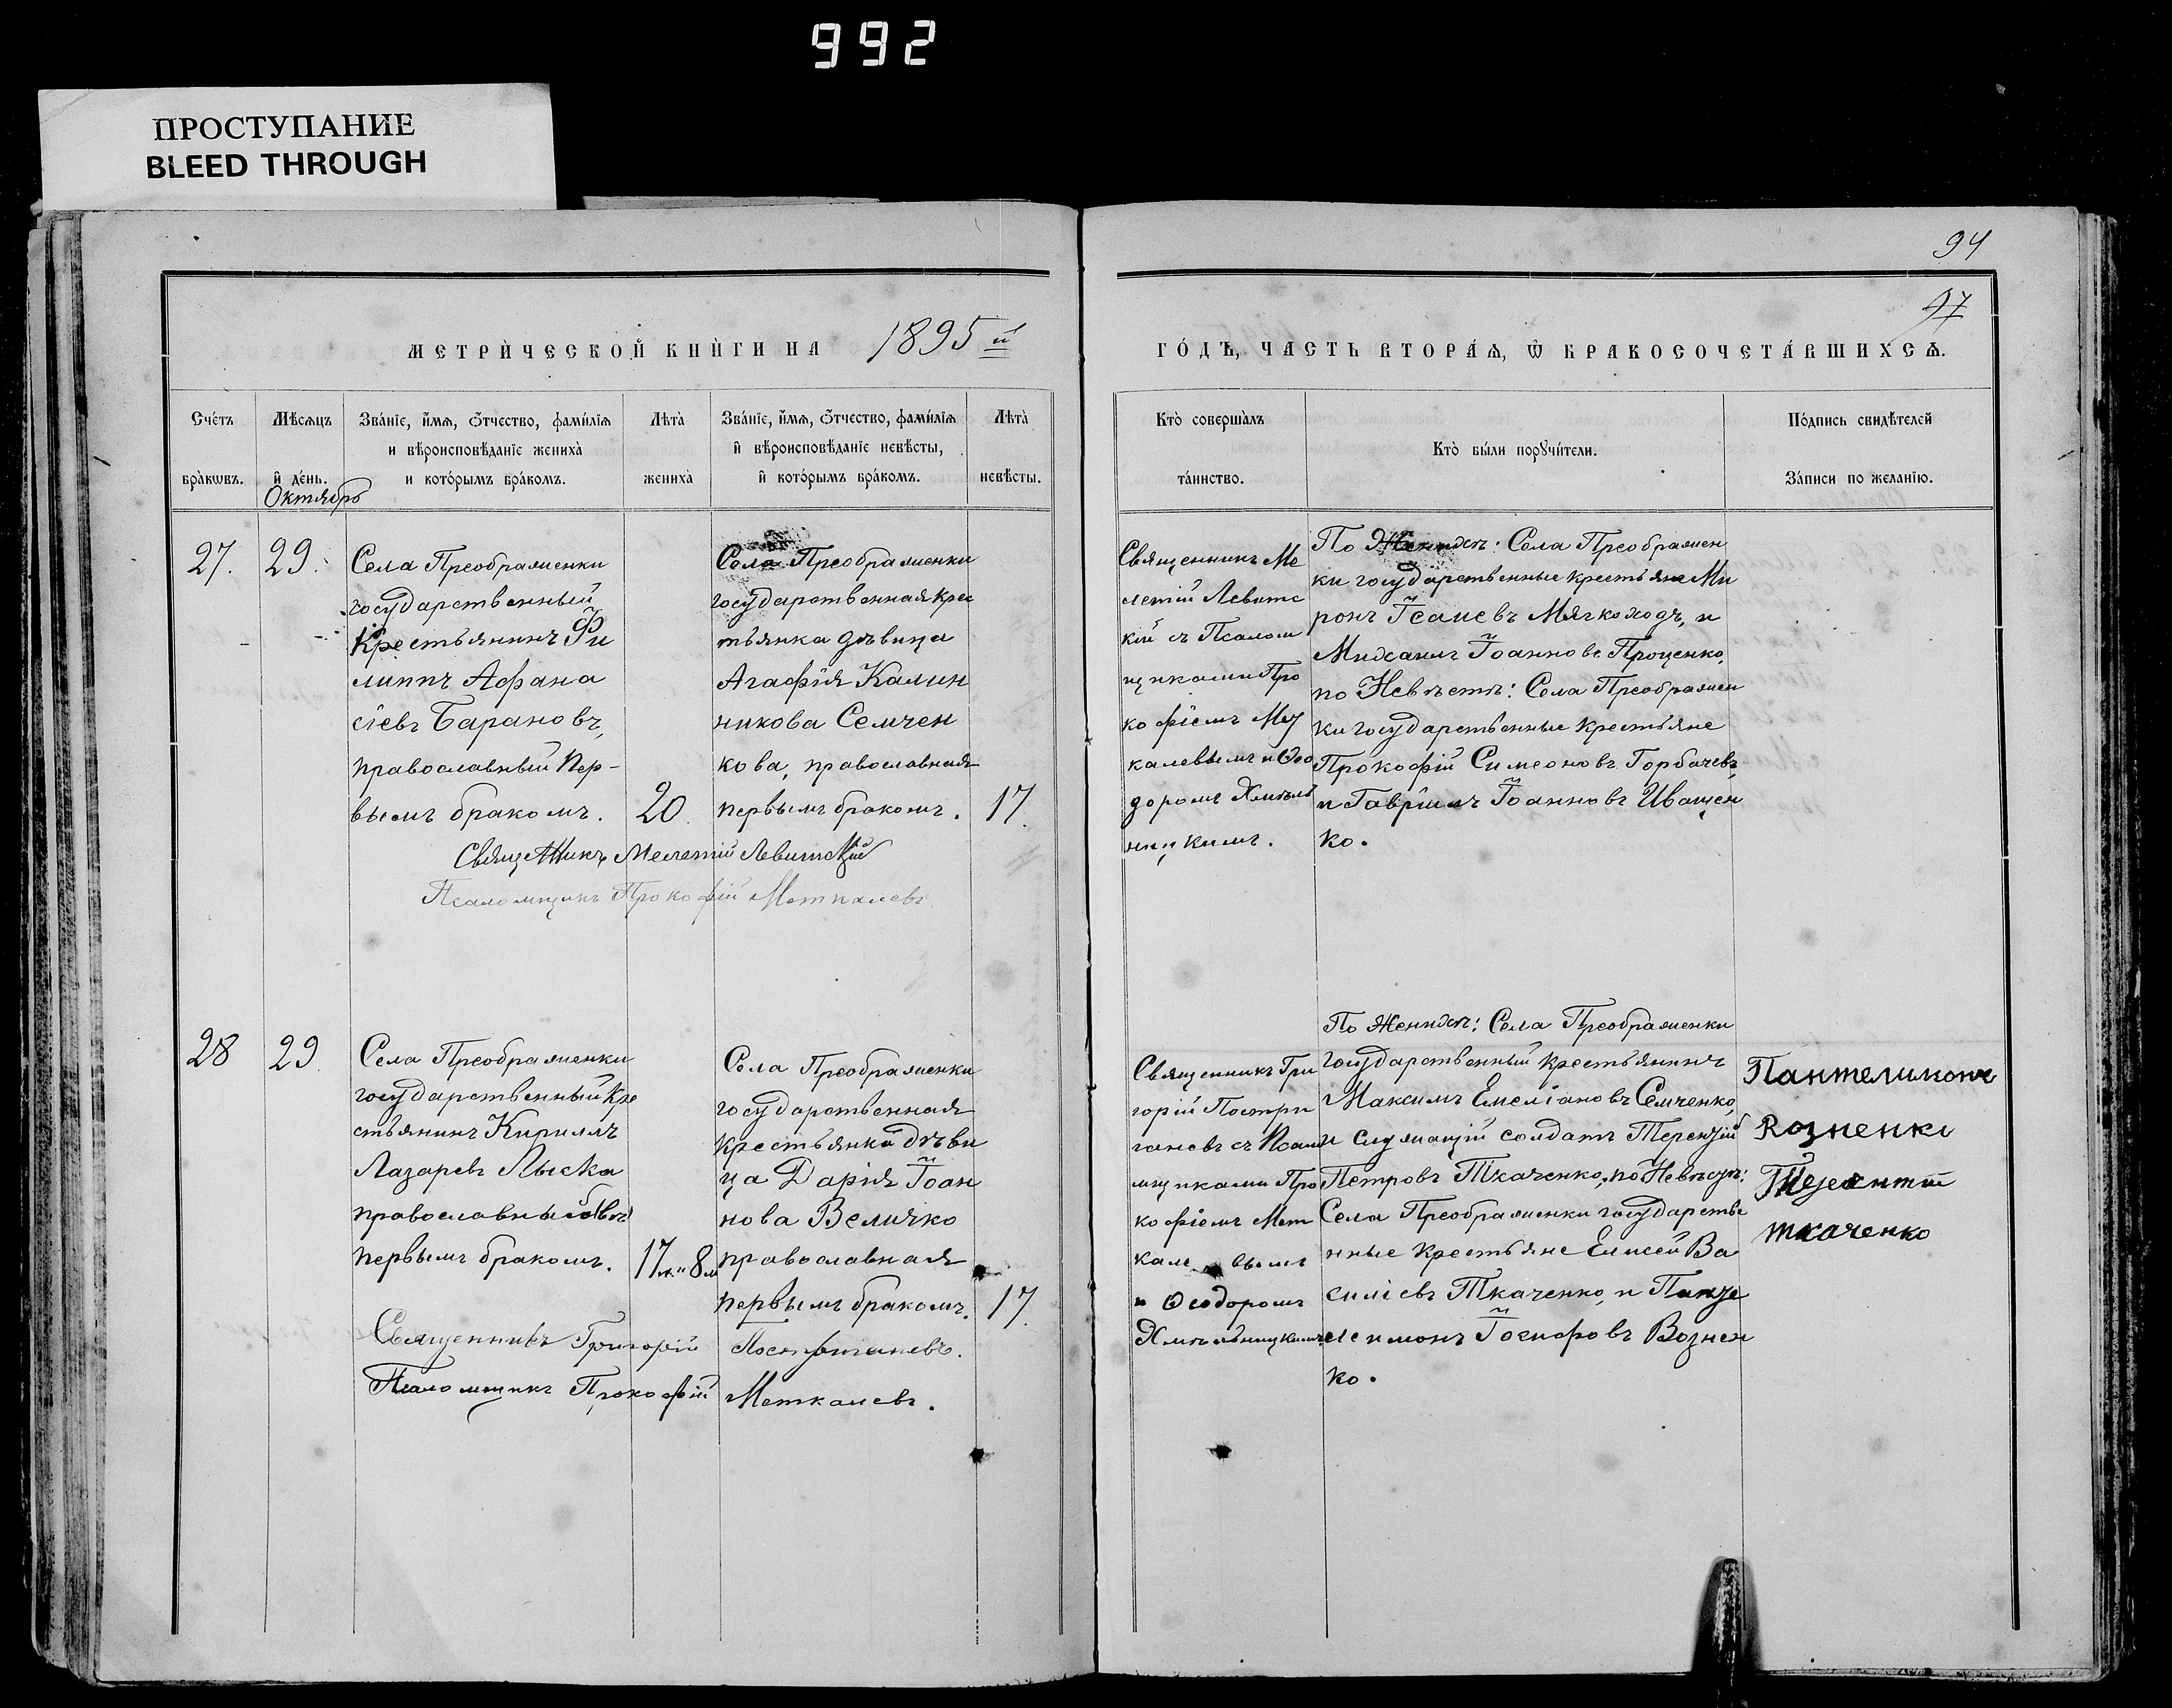 992
ПРОСТУПАНИЕ
BLEED THROUGH
94
97
МЕТРИ́ЧЕСКОЙ КНИ́ГИ НА 1895 й
ГО́ДЪ, ЧАСТЬ ВТОРА́Ѧ, Ѿ БРАКОСОЧЕТА́ВШИХСѦ.
Сче́тъ
бра́кωвъ.
Мѣ́сѧцъ
и҆ де́нь.
Октябрь
Зва́нїе, и҆́мѧ, ѻ҆́тчество, фами́лїѧ
и вѣроисповѣ́данїе жениха̀
и кото́рымъ бра́комъ.
Лѣ́та̀
жениха̀
Зва́нїе, и҆́мѧ, ѻ҆́тчество, фами́лїѧ
и҆ вѣроисповѣ́данїе невѣ́сты,
и҆ кото́рымъ бра́комъ.
Лѣ́та̀
невѣ́сты.
Кто̀ соверша̀лъ
та́инство.
Кто̀ бы́ли порꙋчи́тели.
По́дпись свидѣ́телей
За́писи по жела́нїю.
27.
29.
Села Преображенки
государственный
Крестьянинъ Фи
липпъ Афана
сіевъ Барановъ,
православный пер-
вымъ бракомъ.
20.
Села Преображенки
государственная крес
тьянка дѣвица
Агафія Калин
никова Семчен
кова, православная
первымъ бракомъ.
17.
Священникъ Мелетій Левитскій
Псаломщикъ Прокофій Меткалевъ
Священникъ Ме
летій Левитс
кій съ Псалом
щиками Про
кофіемъ Мет
калевымъ и Ѳео
доромъ Хмѣль
ницкимъ.
По Женихѣ: Села Преображен
ки государственные крестьяне Ми
ронъ Исаиевъ Мягкоходъ, и
Михаилъ Іоанновъ Проценко,
по Невѣстѣ: Села Преображен
ки государственные крестьяне
Прокофій Симеоновъ Горбачевъ,
и Гавріилъ Іоанновъ Иващен
ко.
28
29
Села Преображенки
государственный кре
стьянинъ Кириллъ
Лазаревъ Лыска
православный
первымъ бракомъ.
17 л. и 8 м
Села Преображенки
государственная
крестьянка дѣви
ца Дарія Іоан
нова Величко
православная
первымъ бракомъ.
17.
Священникъ Григорій Постригановъ.
Псаломщикъ Прокофій Меткалевъ.
Священникъ Гри
горій Постри
гановъ съ Псало
мщиками Про
кофіемъ Мет
кале вымъ
и Ѳеодоромъ
Хмѣльницкимъ.
По Женихѣ: Села Преображенки
государственный крестьянинъ
Максимъ Емеліановъ Семченко,
и служащій солдатъ Терентій
Петровъ Ткаченко, по Невѣстѣ:
Села Преображенки государстве
нные крестьяне Елисей Ва
силіевъ Ткаченко, и Панте
леимонъ Іосифовъ Вознен
ко.
Пантелимонъ
Возненко
Терентій
ткаченко